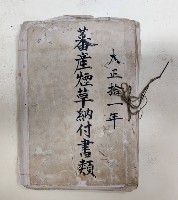 大正拾一年
蕃産煙草納付書類